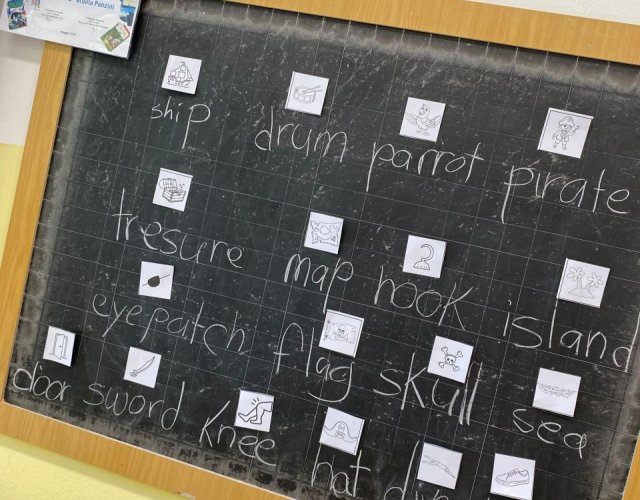 Scuola Panzini
ship drum parrot pirate
tresure map hook island
eyepatch flag skull sea
door sword knee hat